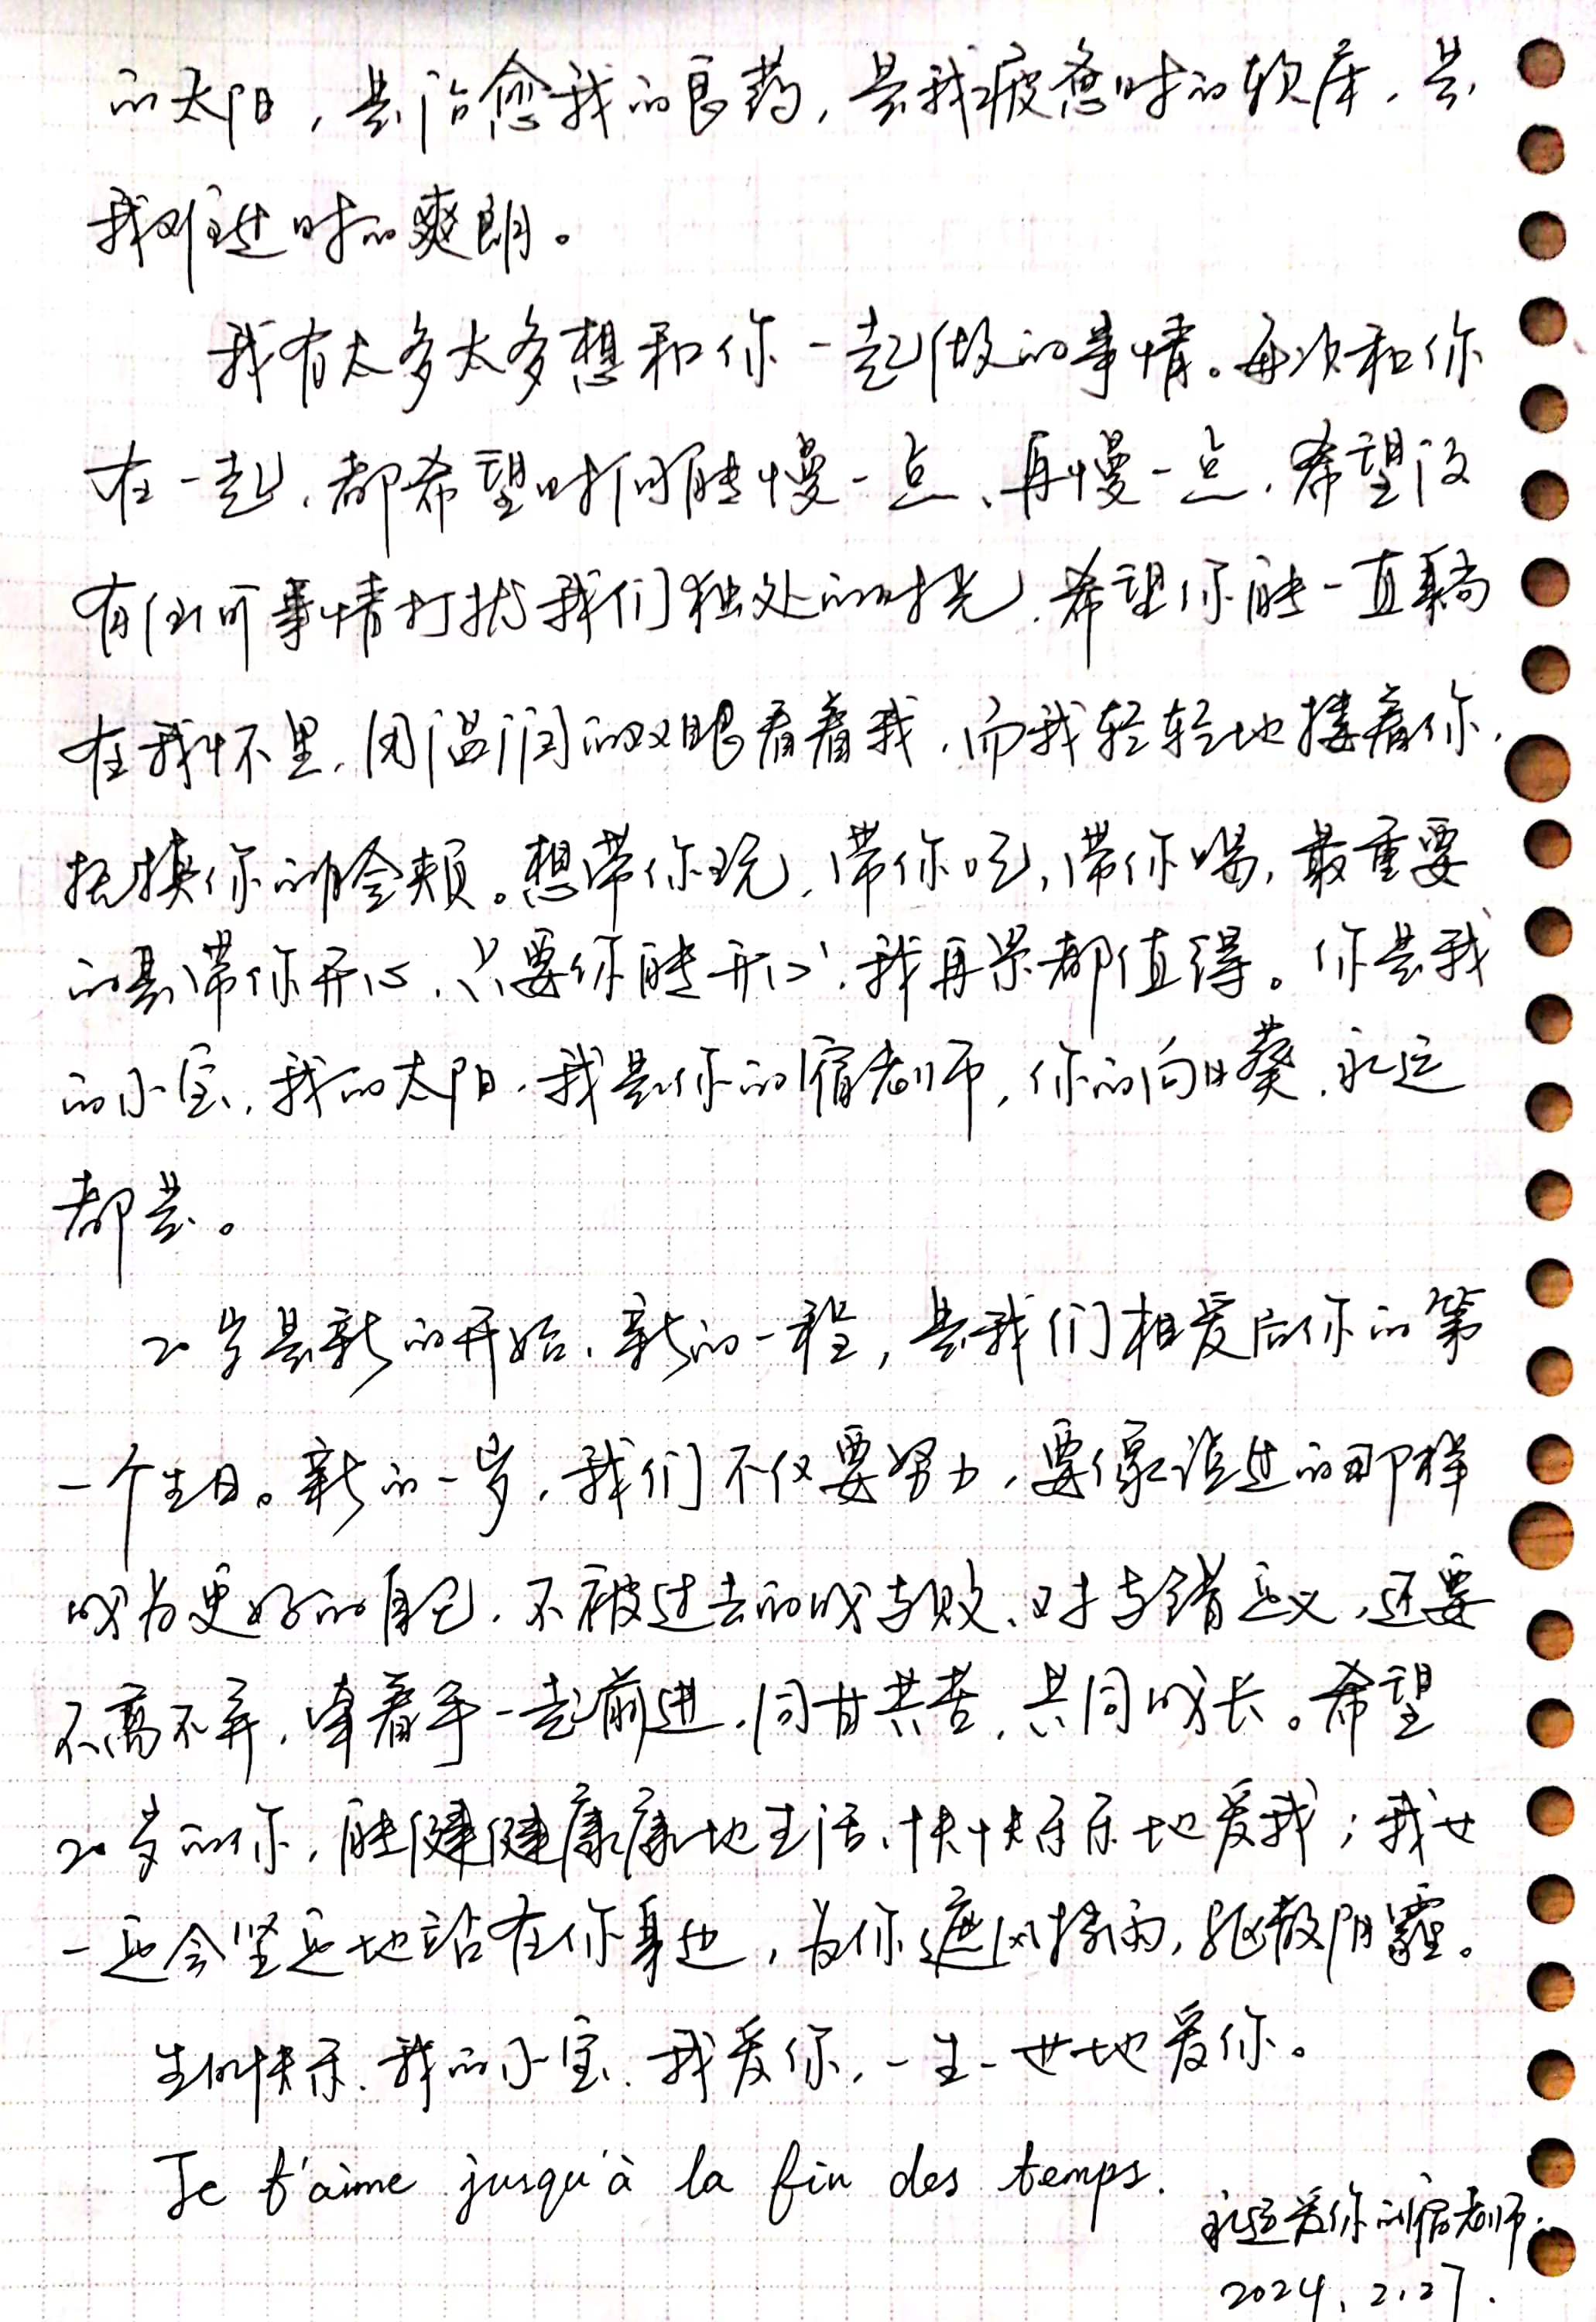 的太阳，是治愈我的良药，是我疲惫时的软床，是
我难过时的爽朗。
我有太多太多想和你一起做的事情。每次和你
在一起，都希望时间能慢一点、再慢一点，希望没
有任何事情打扰我们独处的时光，希望你能一直躺
在我怀里，用温润的双眼看着我，而我轻轻地搂着你，
抚摸你的脸颊。想带你玩，带你吃，带你喝，最重要
的是带你开心，只要你能开心，我再累都值得。你是我
的小宝，我的太阳，我是你的宿老师，你的向日葵，永远
都是。
20岁是新的开始、新的一程，是我们相爱后你的第
一个生日。新的一岁，我们不仅要努力，要像说过的那样
成为更好的自己，不被过去的成与败、对与错定义，还要
不离不弃，牵着手一起前进，同甘共苦，共同成长。希望
20岁的你，能健健康康地生活、快快乐乐地爱我；我也
一定会坚定地站在你身边，为你遮风挡雨，驱散阴霾。
生日快乐，我的小宝，我爱你，一生一世地爱你。
Je t'aime jusqu'à la fin des temps.
永远爱你的宿老师.
2024.2.27.